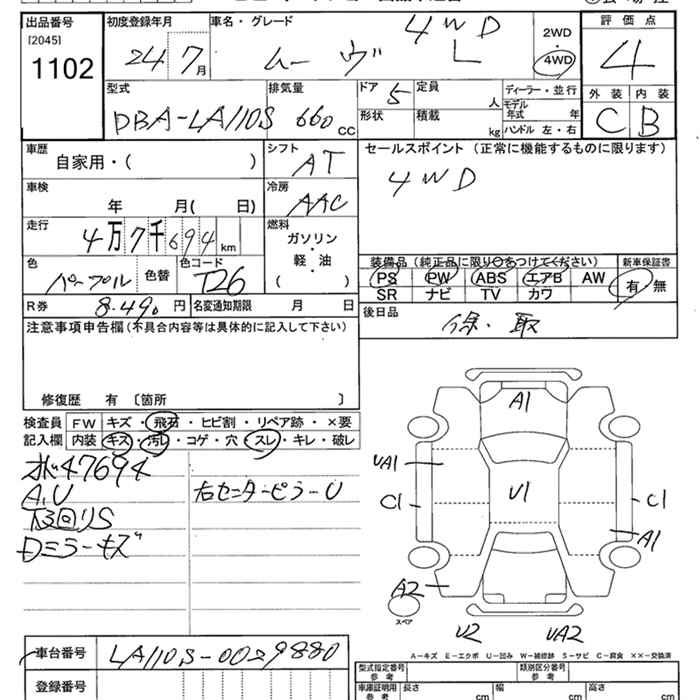 出品番号
[2045]
1102
初度登録年月
24 7月
車名・グレード
4WD
ムーヴ L
2WD
・
4WD
評価点
4
外装 内装
C B
型式
DBA-LA110S
排気量
660 CC
ドア 5
形状
定員 人
積載 kg
ディーラー・並行
モデル年式 年
ハンドル 左・右
車歴
自家用・( )
シフト
AT
セールスポイント (正常に機能するものに限ります)
4WD
車検
年 月( 日)
冷房
AAC
走行
4万7千694 km
燃料
ガソリン
・
軽・油
( )
色
パープル
色替
色コード
T26
装備品 (純正品に限り○をつけてください)
PS PW ABS エアB AW
SR ナビ TV カワ
新車保証書
有・無
R券 8.490 円
名変通知期限 月 日
後日品
保・取
注意事項申告欄(不具合内容等は具体的に記入して下さい)
修復歴 有 〔箇所 〕
検査員
記入欄
FW キズ・飛石・ヒビ割・リペア跡・×要
内装 キズ・汚レ・コゲ・穴・スレ・キレ・破レ
47694
A.U
下回りS
Dミラーキズ
右センターピラーU
A1
UA1
C1
U1
C1
A1
A2
スペア
U2
UA2
A-キズ E-エクボ U-凹み W-補修跡 S-サビ C-腐食 ××-交換済
車台番号
LA110S-0029880
登録番号
型式指定番号
参考
類別区分番号
参考
車庫証明用
参考
長さ cm
幅 cm
高さ cm